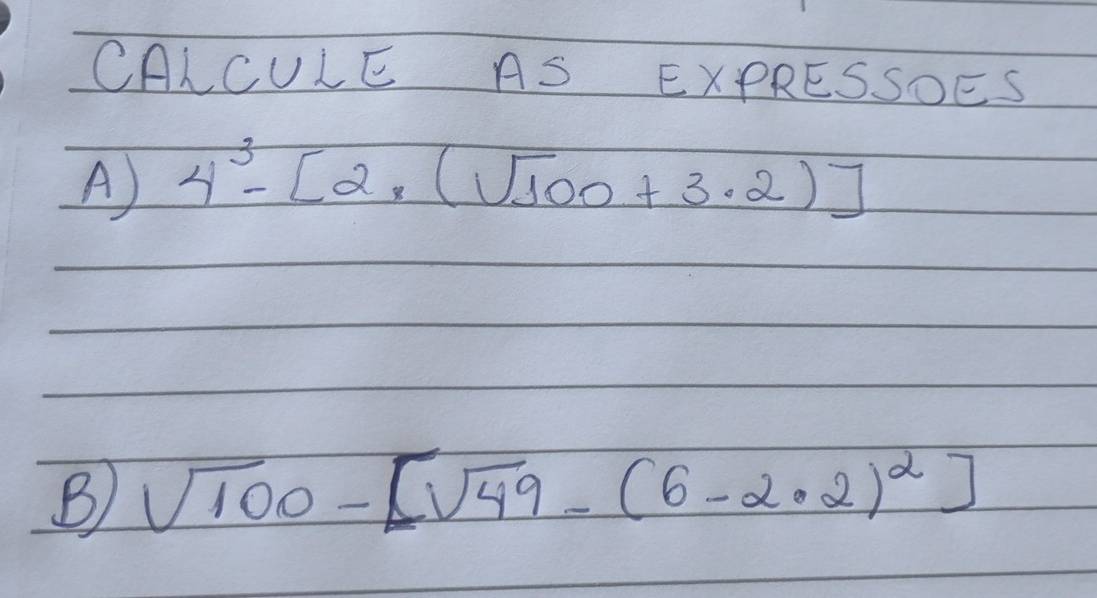 CALCULE AS EXPRESSOES
A) 4³ - [2 . (√100 + 3 . 2)]
B) √100 - [√49 - (6 - 2 . 2)²]